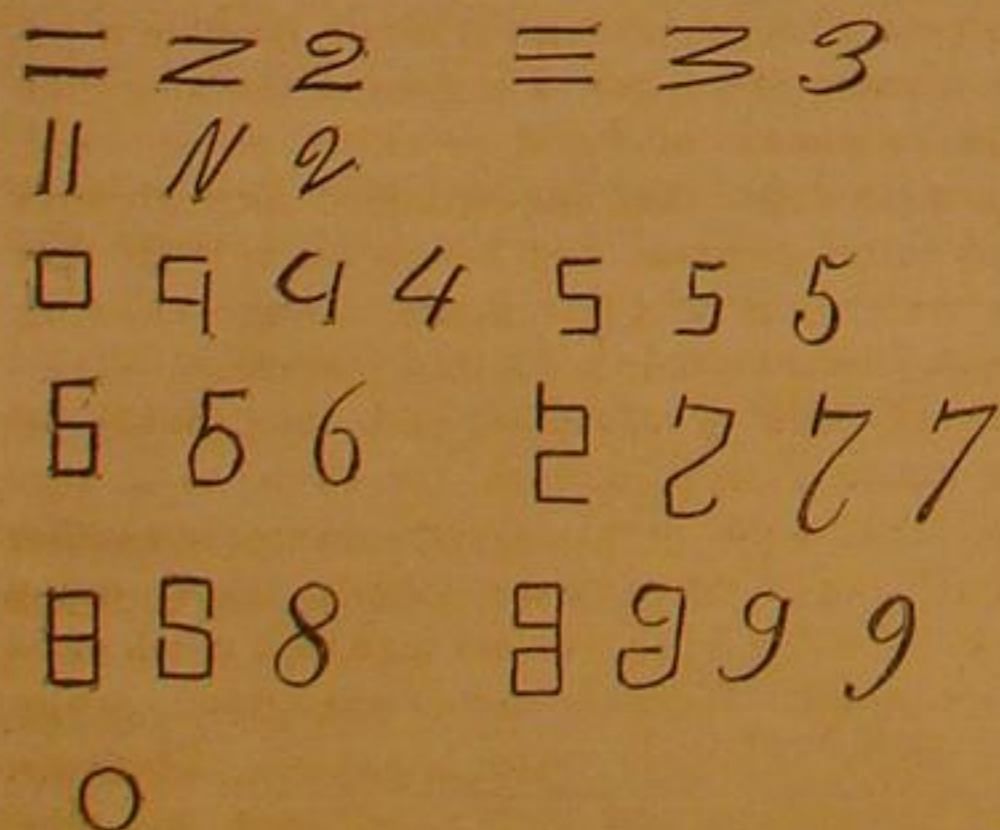 = Z 2 ≡ 3 3
|| N 2
□ 9 4 4 5 5 5
6 6 6 2 2 7 7
8 8 8 9 9 9 9
0